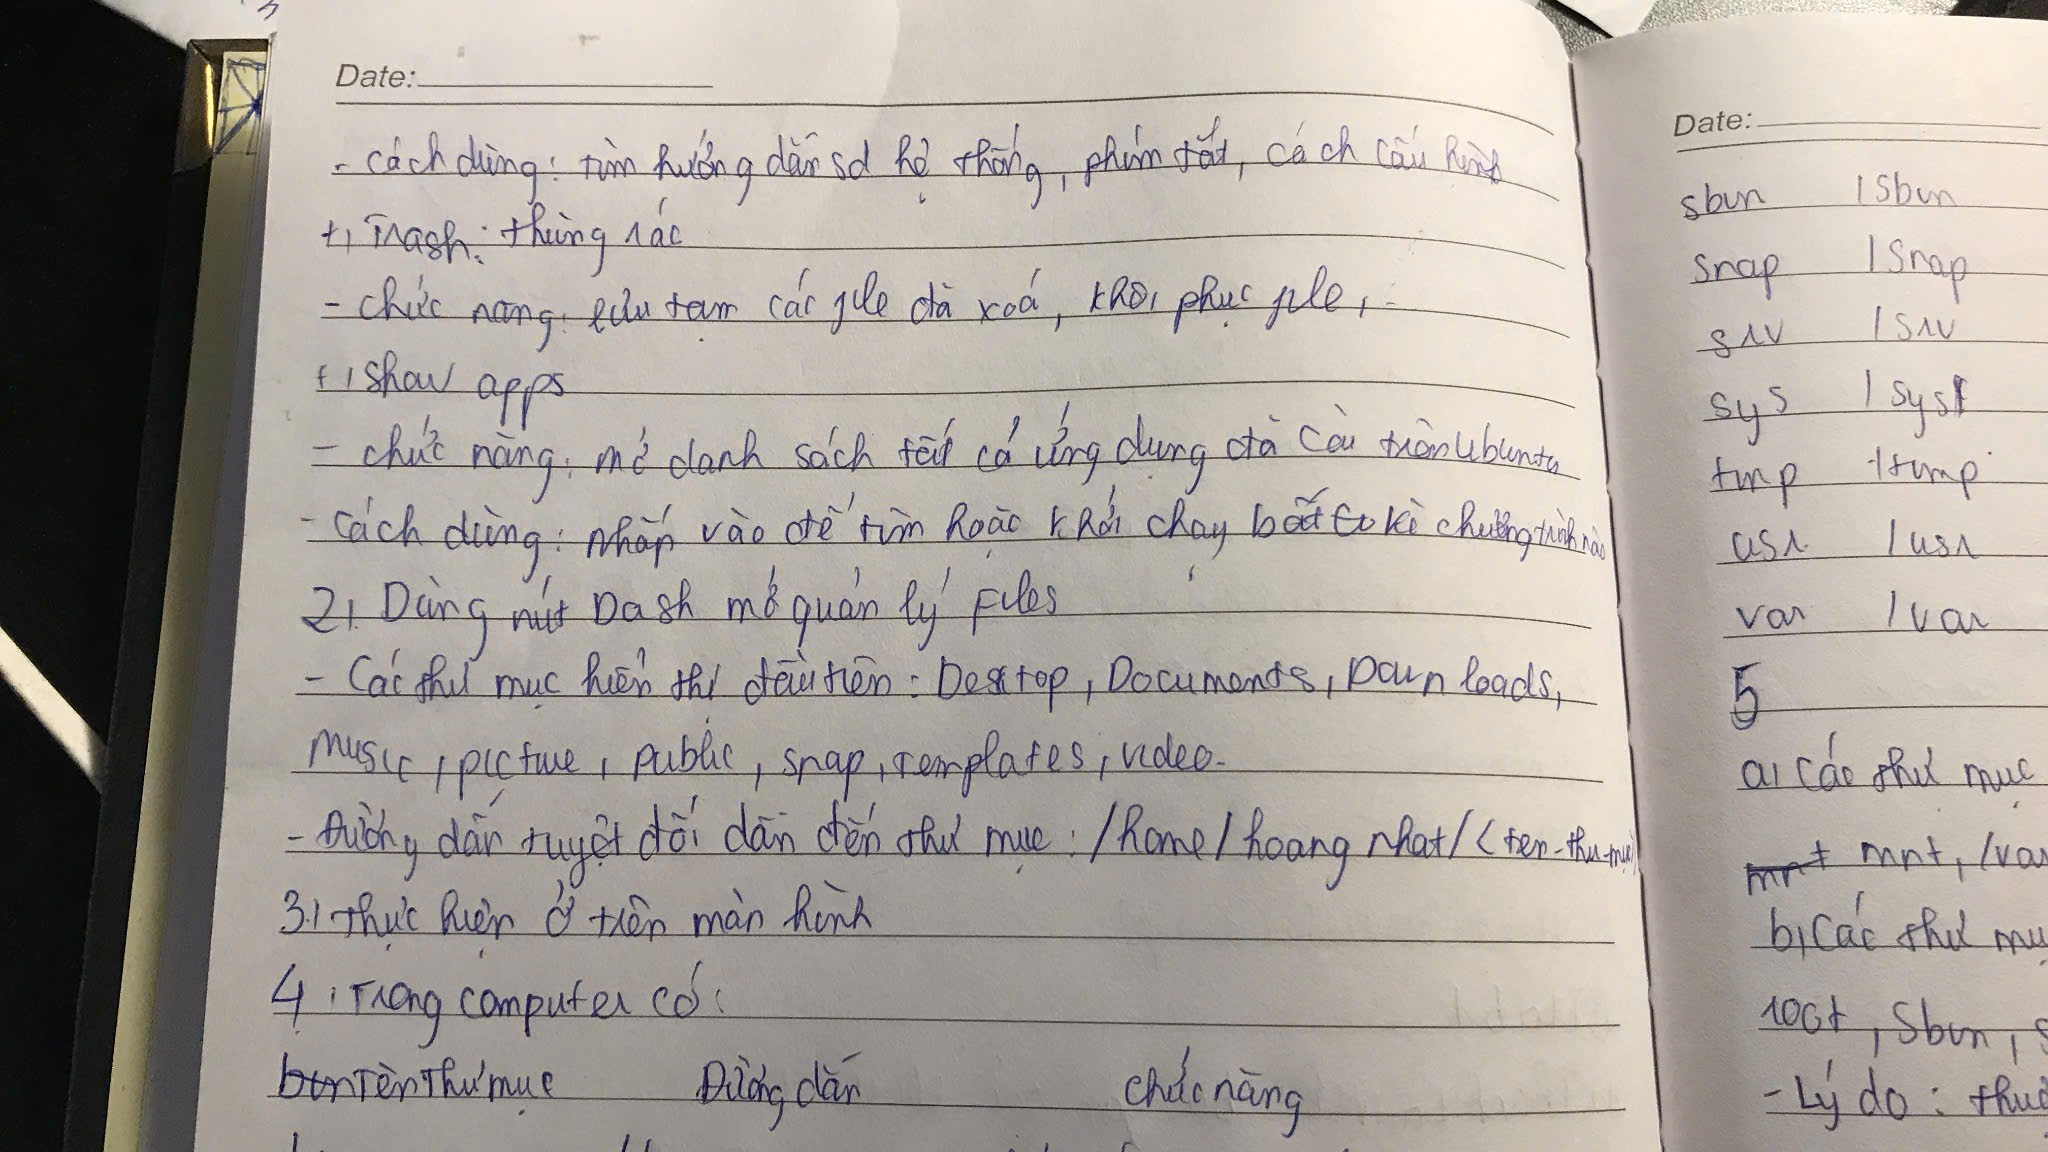 Date:
- Cách dùng: tìm hướng dẫn sd hệ thống, phím tắt, cách cấu hình
+, Trash: thùng rác
- chức năng: lưu tạm các file đã xoá, khôi phục file,
+, Show apps
- chức năng: mở danh sách tất cả ứng dụng đã cài trên Ubuntu
- Cách dùng: nhấn vào để tìm hoặc khởi chạy bất kì chương trình nào
2, Dùng nút Dash mở quản lý Files
- Các thư mục hiển thị đầu tiên: Desktop, Documents, Downloads,
music, picture, public, snap, templates, video.
- Đường dẫn tuyệt đối dẫn đến thư mục: /home/hoangnhat/<ten-thu-muc
3, thực hiện ở trên màn hình
4, Trong computer có:
Tên thư mục Đường dẫn chức năng
Date:
sbin /sbin
snap /snap
srv /srv
sys /sys
tmp /tmp
usr /usr
var /var
5
a, Các thư mục
mnt, /va
b, Các thư mụ
root, sbin, s
- Lý do: thu